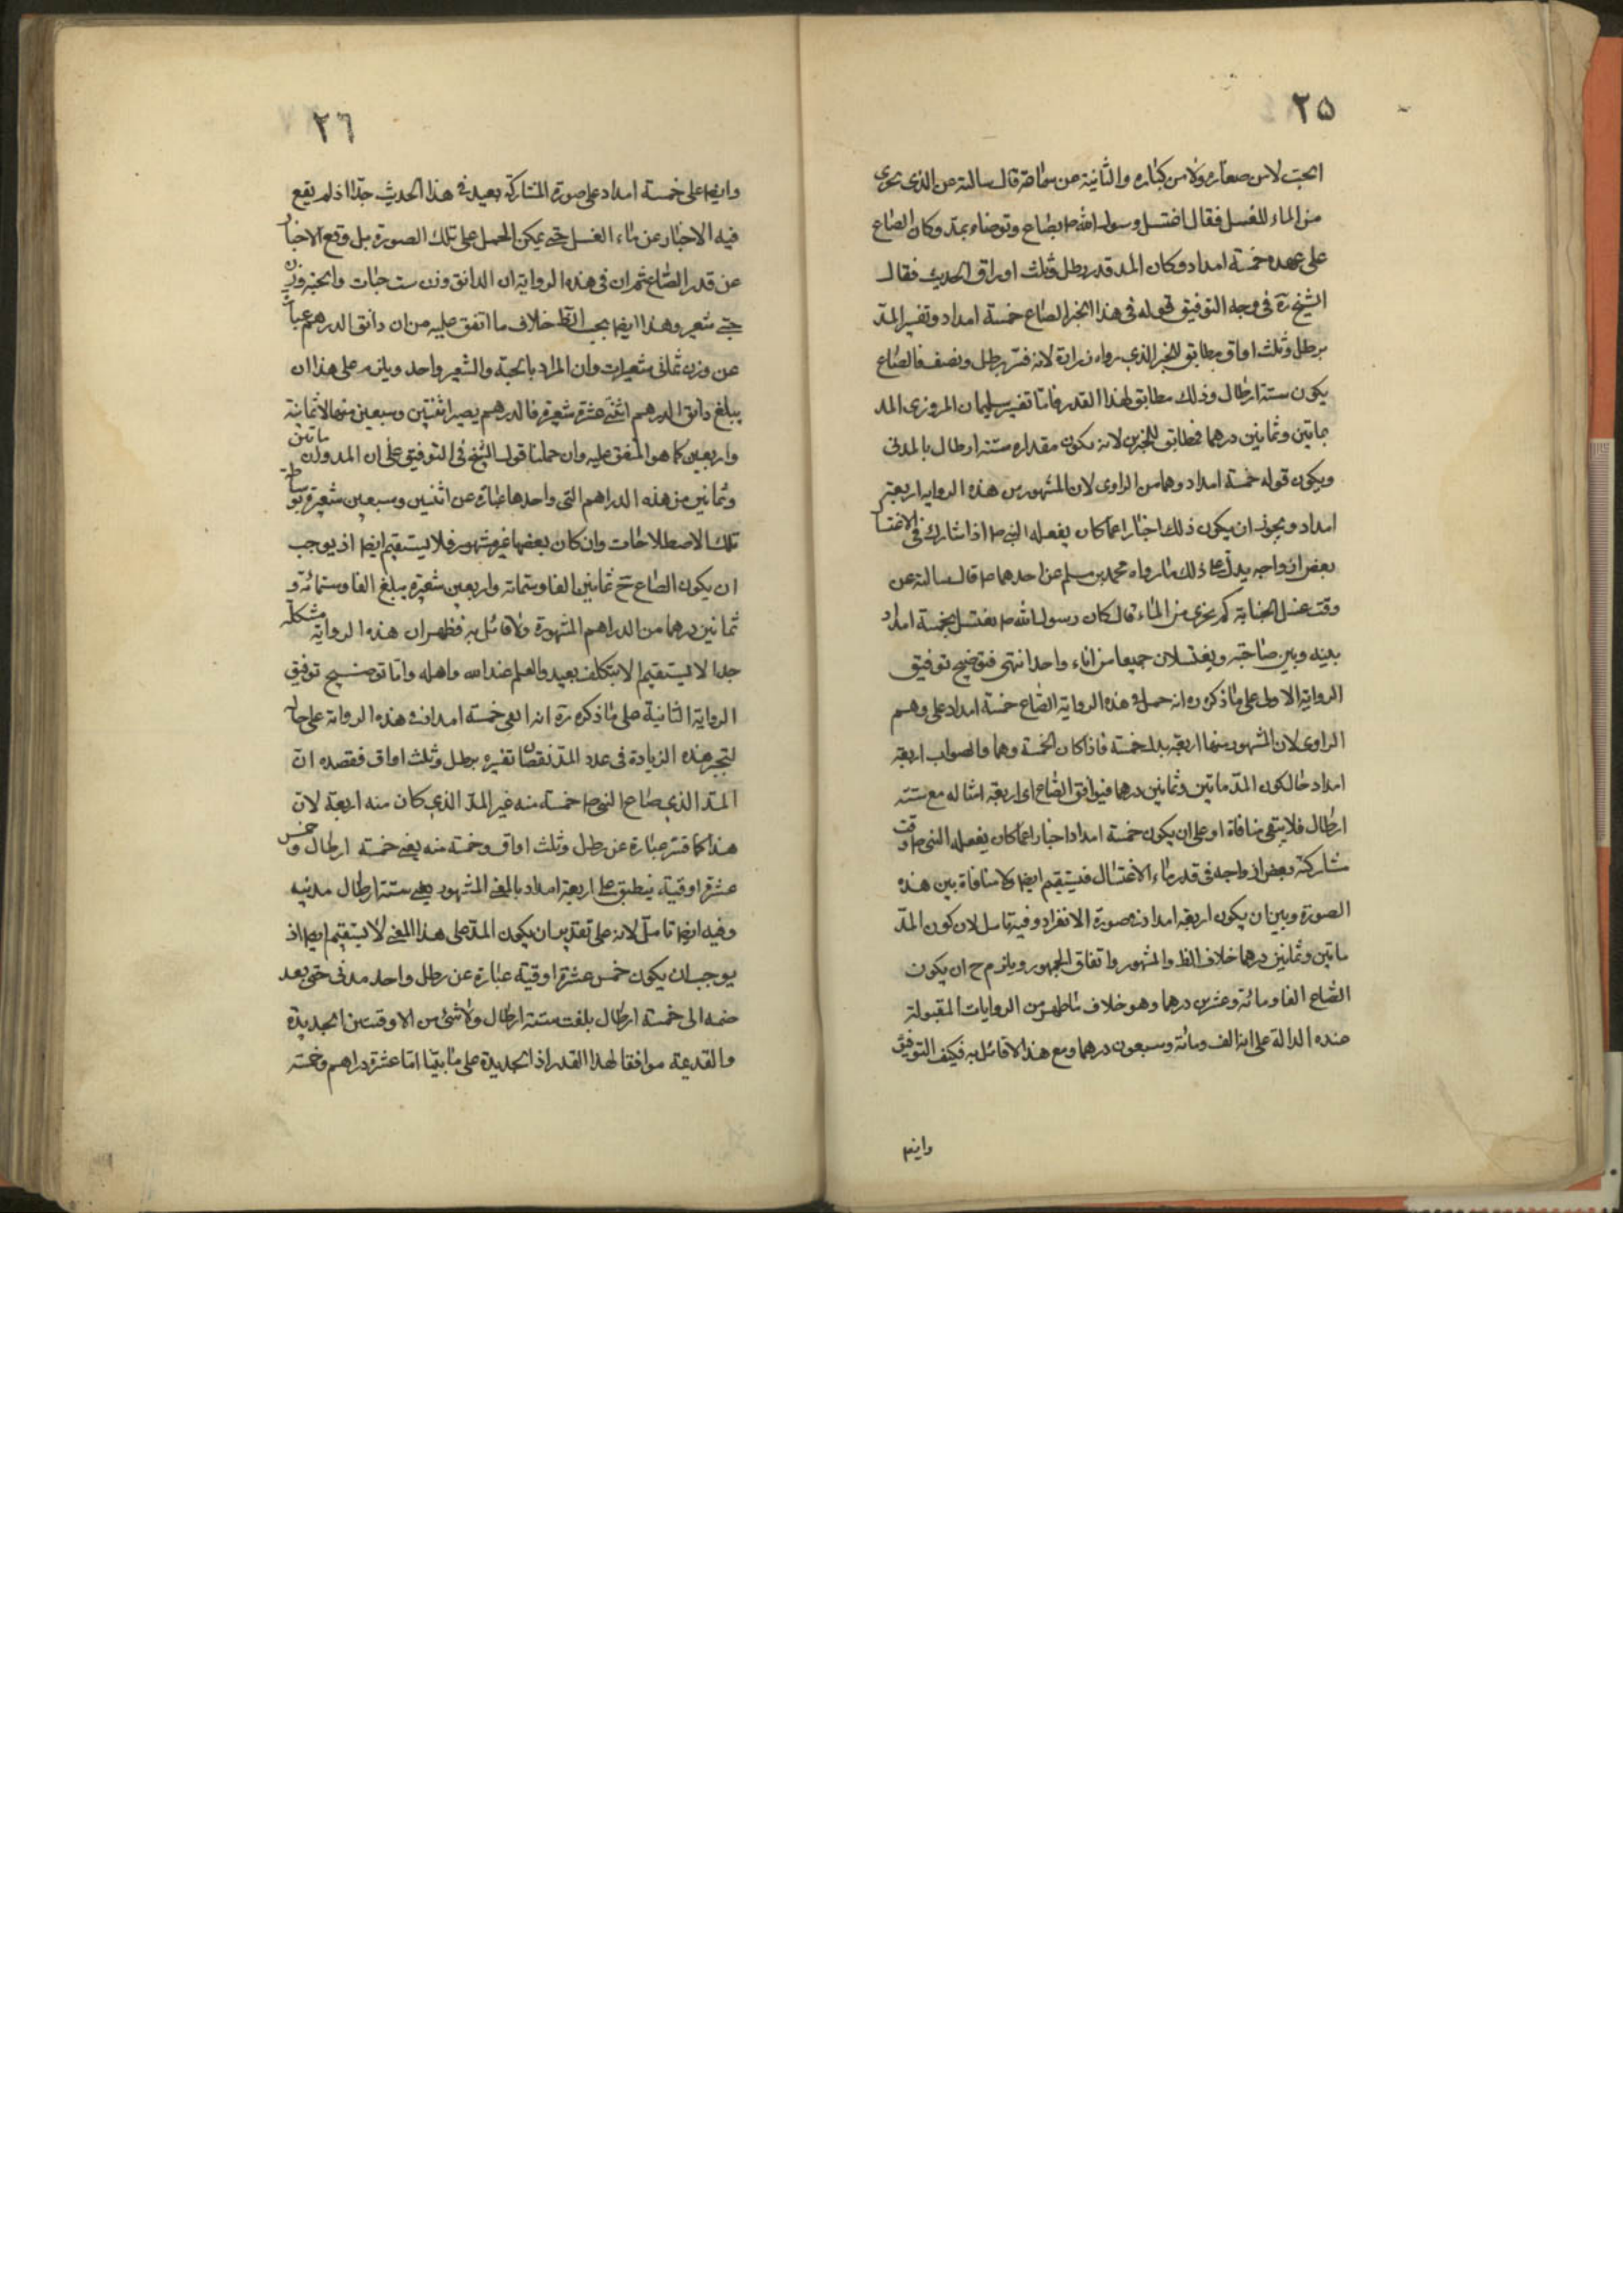 ٢٥
الحبّ لا من صغاره ولا من كباره والثانية عن سماعة قال سالته عن الذى يجزى
من الماء للغسل فقال اغتسل رسول الله ص بصاع وتوضاء بمد وكان الصاع
على عهده خمسة امداد وكان المد قدر رطل وثلث اوراق الحديث فقال
الشيخ ره فى وجه التوفيق قوله فى هذا الخبر الصاع خمسة امداد وتفسير المدّ
برطل وثلث اواق مطابق للخبر الذى رواه زرارة لانه فسّر برطل ونصف فالصاع
يكون ستة ارطال وذلك مطابق لهذا القدر فامّا تفسير سليمان المروزى المد
بماتين وثمانين درهما فطابق للخبرين لانه يكون مقداره ستة ارطال بالمدنى
ويكون قوله خمسة امداد وهما من الراوى لان المشهور من هذه الرواية اربعة
امداد ويجوز ان يكون ذلك اخبارا عمّا كان يفعله النبى ص اذا شارك فى الاغتسال
بعض ازواجه يدلّ على ذلك ما رواه محمد بن مسلم عن احدهما ص قال سالته عن
وقت غسل الجنابة كم يجزى من الماء قال كان رسول الله ص يغتسل بخمسة امداد
بينه وبين صاحبته ويغتسلان جميعا من اناء واحد انتهى فتوضيح توفيق
الرواية الاولى على ما ذكره ره انه حمل فى هذه الرواية الصاع خمسة امداد على وهم
الراوى لان المشهور منها اربعة بدل خمسة فاذا كان الخمسة وهما والصواب اربعة
امداد حالكون المدّ ماتين وثمانين درهما فيوافق الصاع اى اربعة امثاله مع ستة
ارطال فلا يبقى منافاة او على ان يكون خمسة امداد اخبارا عمّا كان يفعله النبى ص وقت
مشاركة بعض ازواجه فى قدر ماء الاغتسال فيستقيم ايضا ولا منافاة بين هذه
الصورة وبين ان يكون اربعة امداد فى صورة الانفراد وفيه تامل لان كون المدّ
ماتين وثمانين درهما خلاف الظ والمشهور واتفاق الجمهور ويلزم ح ان يكون
الصاع الفا ومائة وعشرين درهما وهو خلاف ما ظهر من الروايات المقبولة
عنده الدالة على انه الف ومائة وسبعون درهما ومع هذا لا قائل به فكيف التوفيق
وايضا
٢٦
وايضا على خمسة امداد على صورة المشاركة بعيد فى هذا الحديث جدّا اذ لم يقع
فيه الاخبار عن ماء الغسل حتى يمكن الحمل على تلك الصورة بل وقع الاخبار
عن قدر الصاع ثم ان فى هذه الرواية ان الدانق وزن ست حبّات والحبّة وزن
حبتى شعير وهذا ايضا بحسب الظ خلاف ما اتفق عليه من ان دانق الدرهم عبارة
عن وزن ثمانى شعيرات وان المراد بالحبة والشعير واحد ويلزم على هذا ان
يبلغ دانق الدرهم اثنى عشرة شعيرة فالدرهم يصير اثنتين وسبعين منها لا ثمانية
واربعين كما هو المتفق عليه وان حملنا قول الشيخ فى التوفيق على ان المد وزن ماتين
وثمانين من هذه الدراهم التى واحدها عبارة عن اثنتين وسبعين شعيرة بوساطة
تلك الاصطلاحات وان كان بعضها غير مشهور فلا يستقيم ايضا اذ يوجب
ان يكون الصاع ح ثمانين الفا وستمائة واربعين شعيرة يبلغ الفا وستمائة و
ثمانين درهما من الدراهم المشهورة ولا قائل به فظهر ان هذه الرواية مشكلة
جدا لا يستقيم الا بتكلف بعيد والعلم عند الله واهله وامّا توضيح توفيق
الرواية الثانية على ما ذكره ره انه ابقى خمسة امداد فى هذه الرواية على حاله
لتجبر هذه الزيادة فى عدد المدّ نقصان تفسيره برطل وثلث اواق فقصده ان
المدّ الذى صاع النبى ص خمسة منه غير المدّ الذى كان منه اربعة لان
هذا كما فسّر عبارة عن رطل وثلث اواق وخمسة منه يعنى خمسة ارطال وخمس
عشرة اوقية ينطبق على اربعة امداد بالمعنى المشهور يعنى ستة ارطال مدنية
وفيه ايضا تامل لانه على تقدير ان يكون المدّ على هذا المعنى لا يستقيم ايضا اذ
يوجب ان يكون خمس عشرة اوقية عبارة عن رطل واحد مدنى حتى بعد
ضمه الى خمسة ارطال بلغت ستة ارطال ولا شئ من الاوقيتين الجديدة
والقديمة موافقا لهذا القدر اذ الجديدة على ما بيّنا امّا عشرة دراهم وخمسة